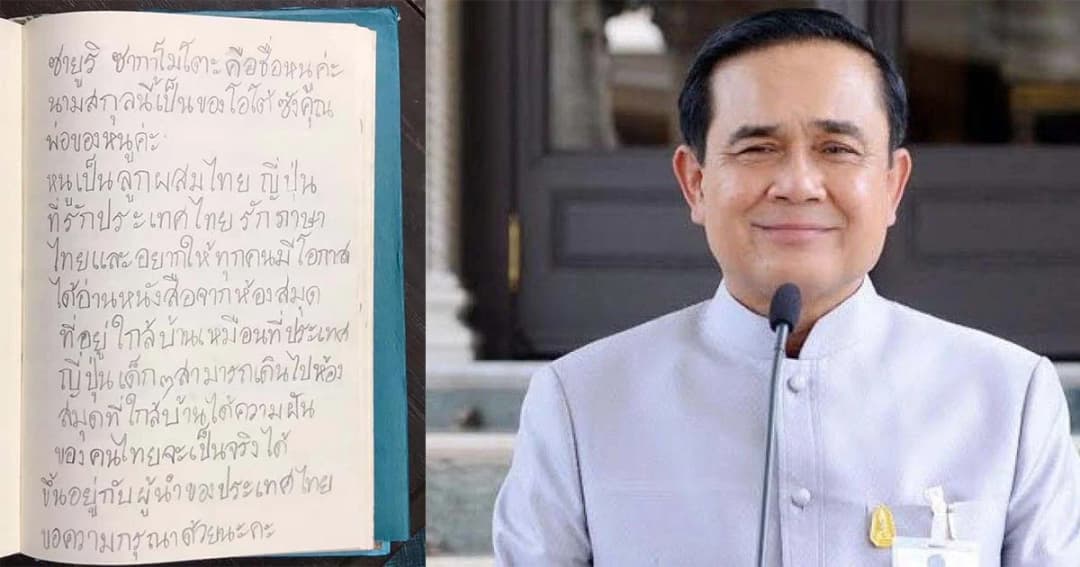 ซายูริ ซากาโมโตะ คือชื่อหนูค่ะ
นามสกุลนี้เป็นของโอโต้ ซังคุณ
พ่อของหนูค่ะ
หนูเป็นลูกผสมไทย ญี่ปุ่น
ที่รักประเทศไทย รักภาษา
ไทยและอยากให้ทุกคนมีโอกาส
ได้อ่านหนังสือจากห้องสมุด
ที่อยู่ใกล้บ้านเหมือนที่ประเทศ
ญี่ปุ่นเด็กๆสามารถเดินไปห้อง
สมุดที่ใกล้บ้านได้ความฝัน
ของคนไทยจะเป็นจริงได้
ขึ้นอยู่กับผู้นำของประเทศไทย
ขอความกรุณาด้วยนะคะ